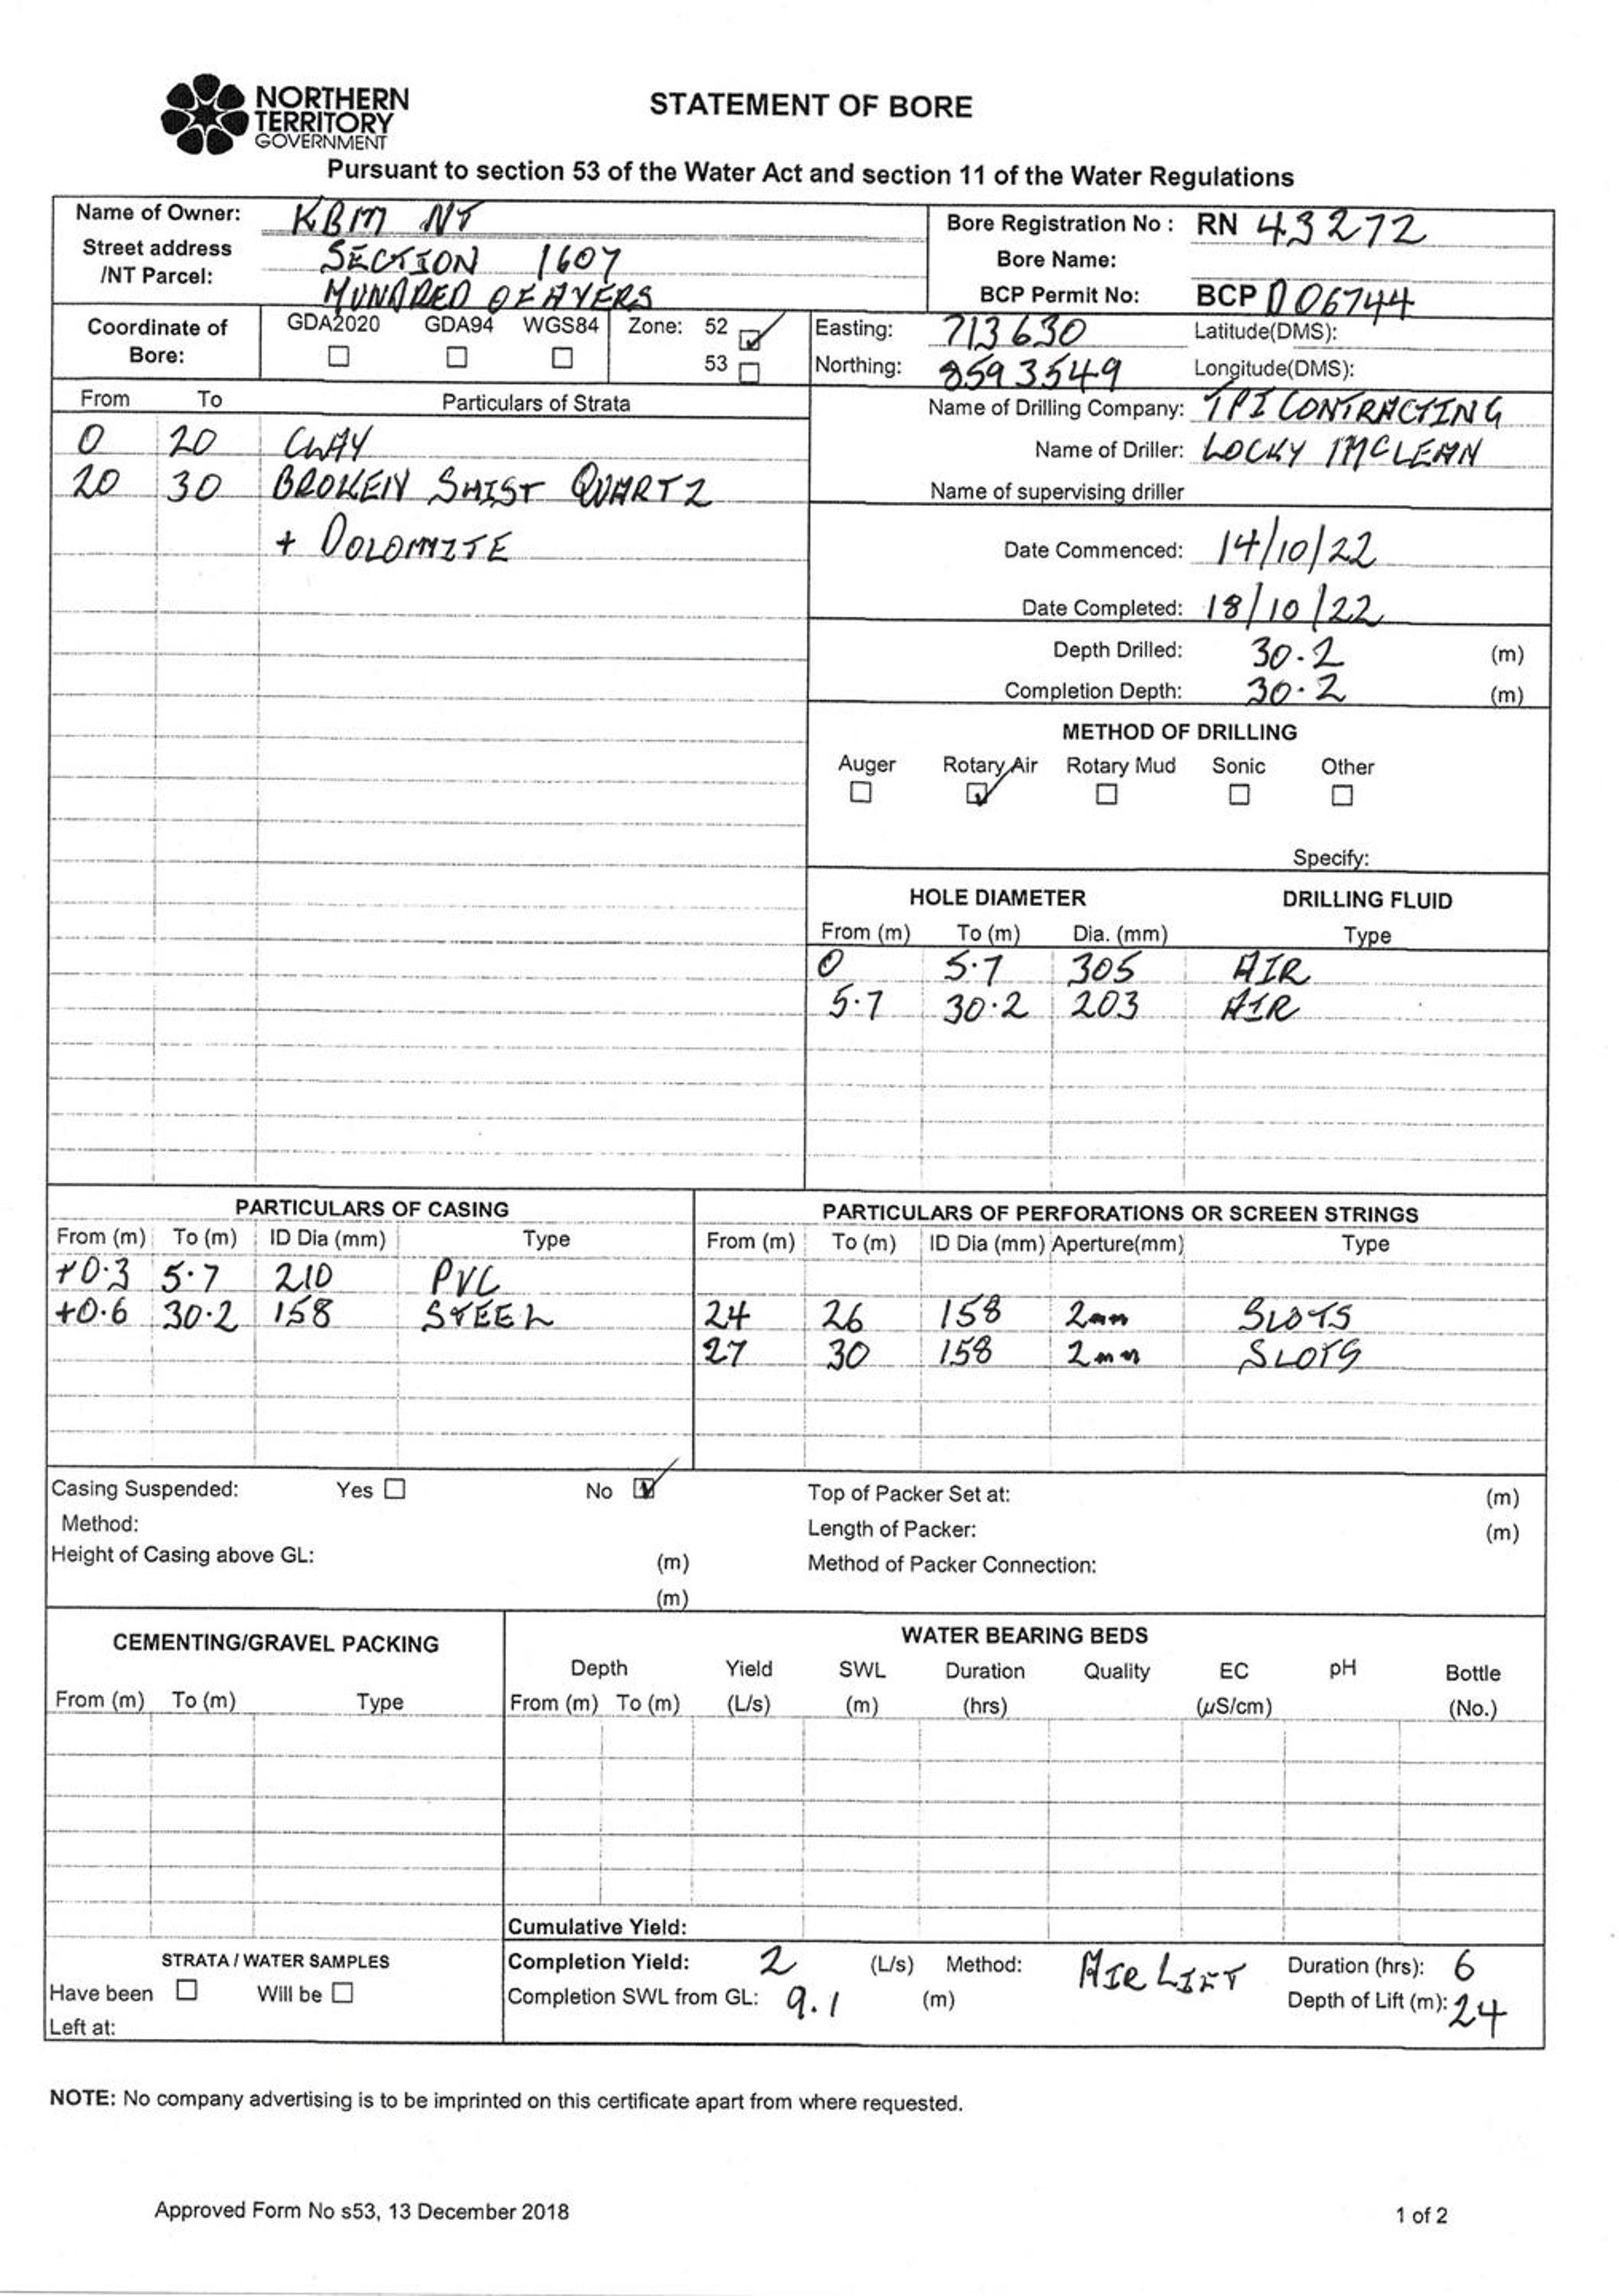 NORTHERN
TERRITORY
GOVERNMENT
STATEMENT OF BORE
Pursuant to section 53 of the Water Act and section 11 of the Water Regulations
Name of Owner: KBM NT
Street address /NT Parcel: SECTION 1607
HUNDRED OF AYERS
Bore Registration No : RN 43272
Bore Name:
BCP Permit No: BCP D06744
Coordinate of Bore: GDA2020 GDA94 WGS84 Zone: 52 53
Easting: 713630 Latitude(DMS):
Northing: 8593549 Longitude(DMS):
From To Particulars of Strata
0 20 CLAY
20 30 BROKEN SHIST QUARTZ
+ DOLOMITE
Name of Drilling Company: TPI CONTRACTING
Name of Driller: LOCKY MCLEAN
Name of supervising driller
Date Commenced: 14/10/22
Date Completed: 18/10/22
Depth Drilled: 30.2 (m)
Completion Depth: 30.2 (m)
METHOD OF DRILLING
Auger Rotary Air Rotary Mud Sonic Other
Specify:
HOLE DIAMETER DRILLING FLUID
From (m) To (m) Dia. (mm) Type
0 5.7 305 AIR
5.7 30.2 203 AIR
PARTICULARS OF CASING
From (m) To (m) ID Dia (mm) Type
+0.3 5.7 210 PVC
+0.6 30.2 158 STEEL
PARTICULARS OF PERFORATIONS OR SCREEN STRINGS
From (m) To (m) ID Dia (mm) Aperture(mm) Type
24 26 158 2mm SLOTS
27 30 158 2mm SLOTS
Casing Suspended: Yes No
Method:
Height of Casing above GL: (m)
(m)
Top of Packer Set at: (m)
Length of Packer: (m)
Method of Packer Connection:
CEMENTING/GRAVEL PACKING
From (m) To (m) Type
WATER BEARING BEDS
Depth Yield SWL Duration Quality EC pH Bottle
From (m) To (m) (L/s) (m) (hrs) (µS/cm) (No.)
Cumulative Yield:
STRATA / WATER SAMPLES
Have been Will be
Left at:
Completion Yield: 2 (L/s) Method: AIR LIFT Duration (hrs): 6
Completion SWL from GL: 9.1 (m) Depth of Lift (m): 24
NOTE: No company advertising is to be imprinted on this certificate apart from where requested.
Approved Form No s53, 13 December 2018
1 of 2